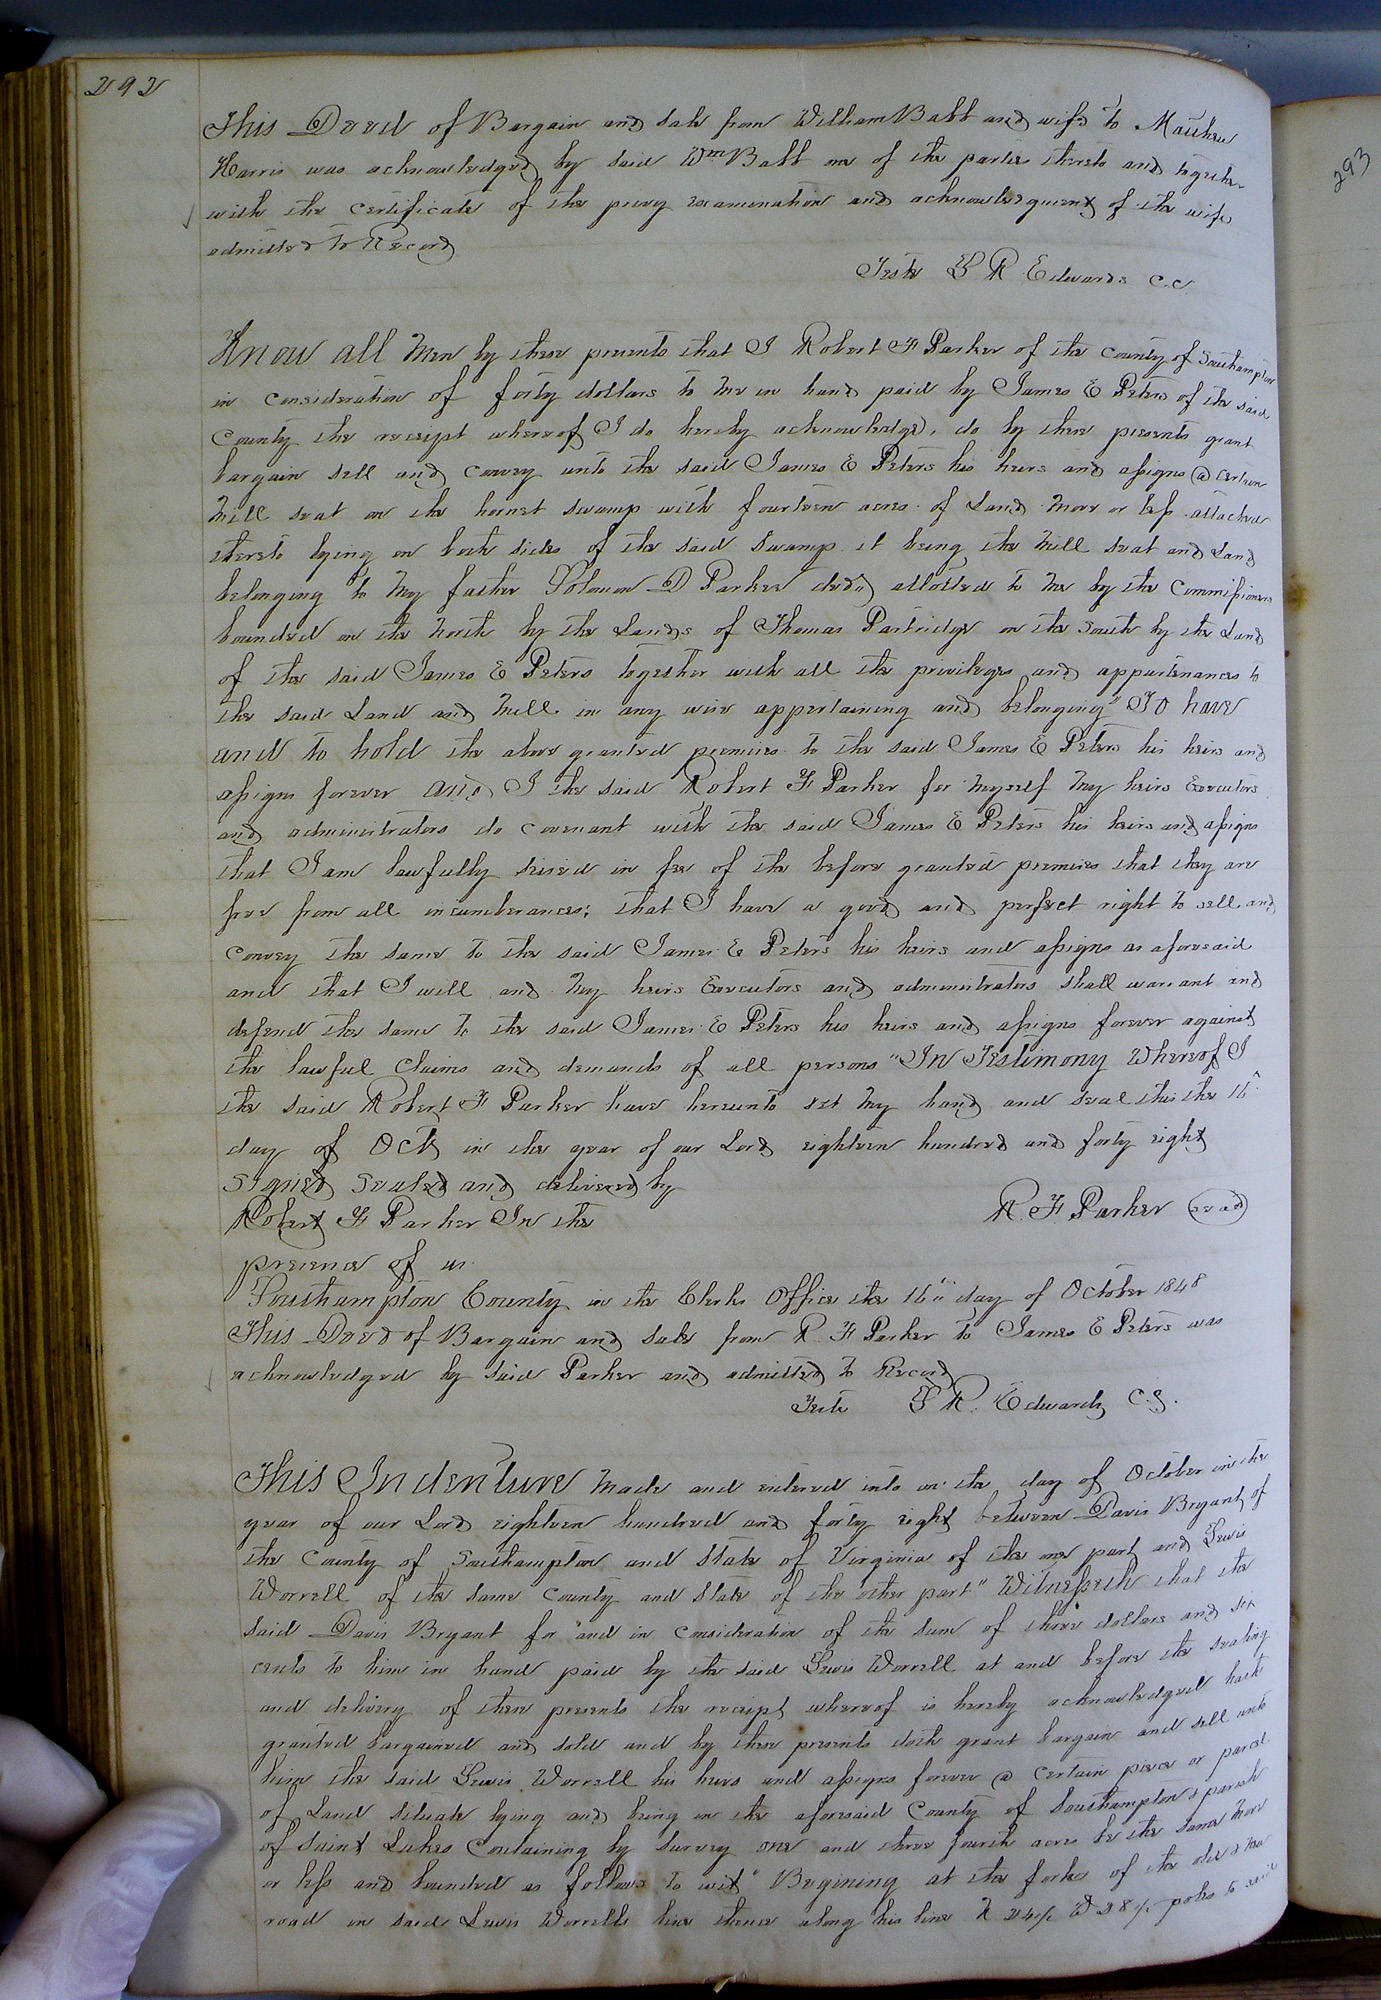 292
This Deed of Bargain and sale from William Babb and wife to Mathew
Harris was acknowledged by said Wm Babb one of the parties thereto and together
with the certificate of the privy examination and acknowledgment of the wife
admitted to Record
Teste L R Edwards C.C.
293
Know all Men by these presents that I Robert F Parker of the County of Southampton
in consideration of forty dollars to me in hand paid by James E Peters of the said
County the receipt whereof I do hereby acknowledge, do by these presents grant
bargain sell and convey unto the said James E Peters his heirs and assigns @ certain
Mill seat on the hornet swamp with fourteen acres of Land more or less attached
thereto lying on both sides of the said Swamp it being the Mill seat and Land
belonging to my father Solomon D Parker decd allotted to me by the Commissioners
bounded on the North by the Lands of Thomas Partridge on the South by the Land
of the said James E Peters together with all the privileges and appurtenances to
the said Land and Mill in any wise appertaining and belonging" To have
and to hold the above granted premises to the said James E Peters his heirs and
assigns forever and I the said Robert F Parker for myself my heirs Executors
and administrators do covenant with the said James E Peters his heirs and assigns
that I am lawfully seised in fee of the before granted premises that they are
free from all incumberances; that I have a good and perfect right to sell and
convey the same to the said James E Peters his heirs and assigns as aforesaid
and that I will and my heirs Executors and administrators shall warrant and
defend the same to the said James E Peters his heirs and assigns forever against
the lawful Claims and demands of all persons "In Testimony Whereof I
the said Robert F Parker have hereunto set my hand and seal this the 16
day of Oct in the year of our Lord eighteen hundred and forty eight
Signed Sealed and delivered by
Robert F Parker In the
R. F. Parker seal
presence of us
Southampton County in the Clerks Office the 16" day of October 1848
This Deed of Bargain and sale from R. F Parker to James E Peters was
acknowledged by said Parker and admitted to Record
Teste L R. Edwards C.C.
This Indenture made and entered into on the day of October in the
year of our Lord eighteen hundred and forty eight between Davis Bryant of
the County of Southampton and State of Virginia of the one part and Lewis
Worrell of the same County and State of the other part" Witnesseth that the
said Davis Bryant for and in consideration of the sum of three dollars and six
cents to him in hand paid by the said Lewis Worrell at and before the sealing
and delivery of these presents the receipt whereof is hereby acknowledged hath
granted bargained and sold and by these presents doth grant bargain and sell unto
him the said Lewis Worrell his heirs and assigns forever @ certain piece or parcel
of Land situate lying and being in the aforesaid County of Southampton & parish
of Saint Lukes Containing by survey one and three fourth acres be the same more
or less and bounded as follows to wit" Begining at the forks of the old & new
road in said Lewis Worrells line thence along his line N 24½ W 28½ poles to said